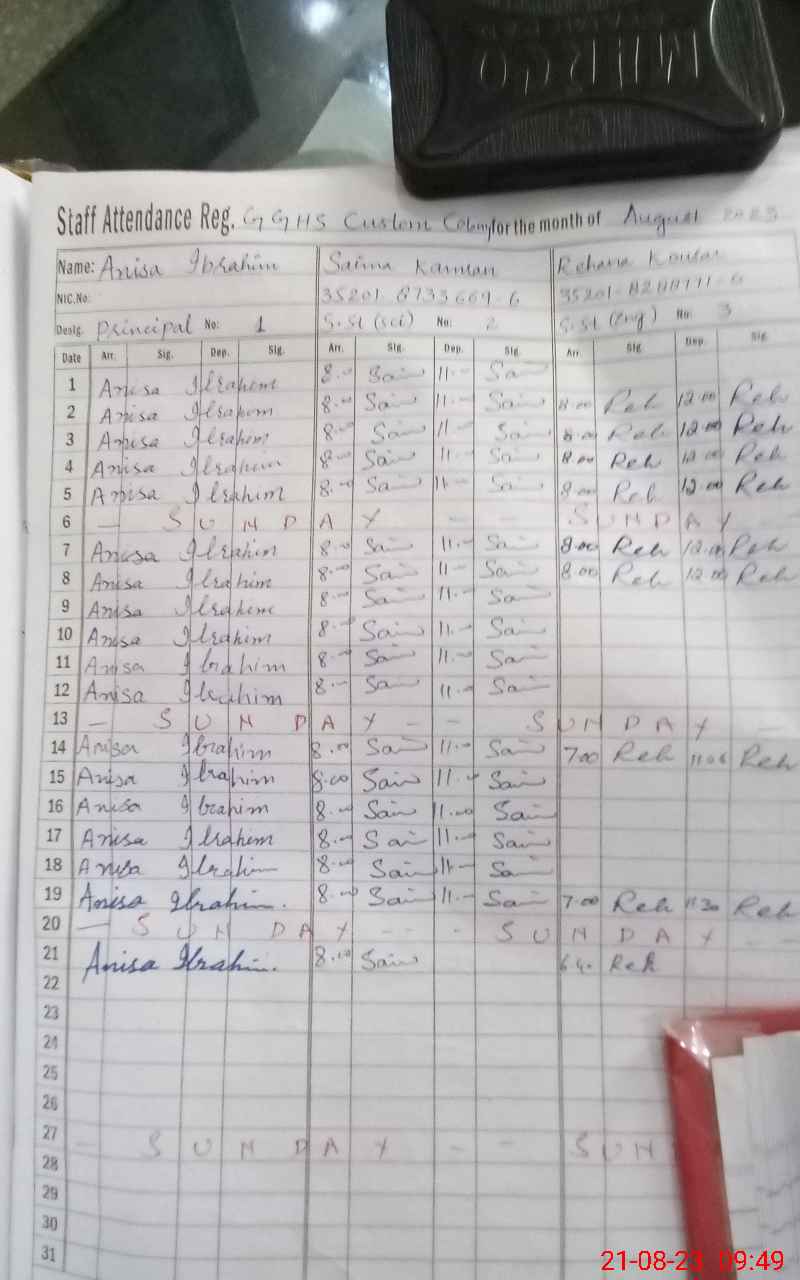 Staff Attendance Reg. GGHS Custom Colony for the month of August 2023
Name: Anisa Ibrahim Saima Kamran Rehana Kousar
NIC.No: 35201-8733669-6
Desig. Principal No: 1 S.St (sci) No: 2 S.St (Eng) No: 3
Date Arr. Sig. Dep. Sig. Arr. Sig. Dep. Sig. Arr Sig Dep. Sig
1 Anisa Ibrahim 8.00 Sai 11.- Sai
2 Anisa Ibrahim 8.00 Sai 11.- Sai 8.00 Reh 12.00 Reh
3 Anisa Ibrahim 8.00 Sai 11.- Sai 8.00 Reh 12.00 Reh
4 Anisa Ibrahim 8.00 Sai 11.- Sai 8.00 Reh 12.00 Reh
5 Anisa Ibrahim 8.00 Sai 11.- Sai 8.00 Reh 12.00 Reh
6 — S U N D A Y - - S U N D A Y -
7 Anisa Ibrahim 8.00 Sai 11.- Sai 8.00 Reh 12.00 Reh
8 Anisa Ibrahim 8.00 Sai 11- Sai 8.00 Reh 12.00 Reh
9 Anisa Ibrahim 8.00 Sai 11.- Sai
10 Anisa Ibrahim 8.00 Sai 11.- Sai
11 Anisa Ibrahim 8.- Sai 11.- Sai
12 Anisa Ibrahim 8.- Sai 11.- Sai
13 — S U N D A Y - - S U N D A Y —
14 Anisa Ibrahim 8.00 Sai 11.- Sai 7.00 Reh Reh
15 Anisa Ibrahim 8.00 Sai 11.- Sai
16 Anisa Ibrahim 8.00 Sai 11.00 Sai
17 Anisa Ibrahim 8.00 Sai 11.- Sai
18 Anisa Ibrahim 8.00 Sai 11.- Sai
19 Anisa Ibrahim. 8.00 Sai 11.- Sai 7.00 Reh 11.30 Reh
20 — S U N D A Y - - - S U N D A Y - -
21 Anisa Ibrahim. 8.00 Sai Reh
22
23
24
25
26
27 - S U N D A Y - - S U N
28
29
30
31
21-08-23 09:49